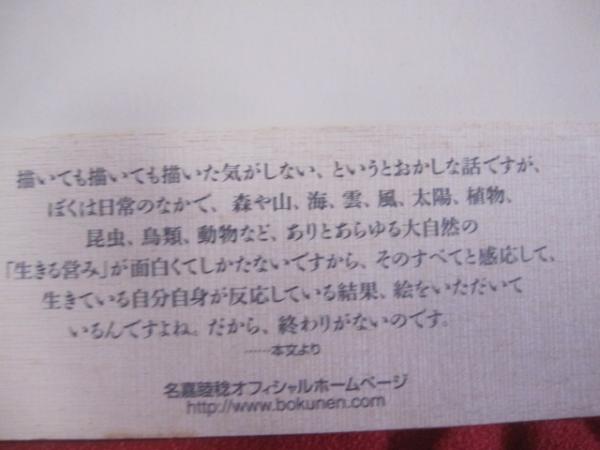 描いても描いても描いた気がしない、というとおかしな話ですが、
ぼくは日常のなかで、森や山、海、雲、風、太陽、植物、
昆虫、鳥類、動物など、ありとあらゆる大自然の
「生きる営み」が面白くてしかたないですから、そのすべてと感応して、
生きている自分自身が反応している結果、絵をいただいて
いるんですよね。だから、終わりがないのです。
……本文より
名嘉睦稔オフィシャルホームページ
http://www.bokunen.com